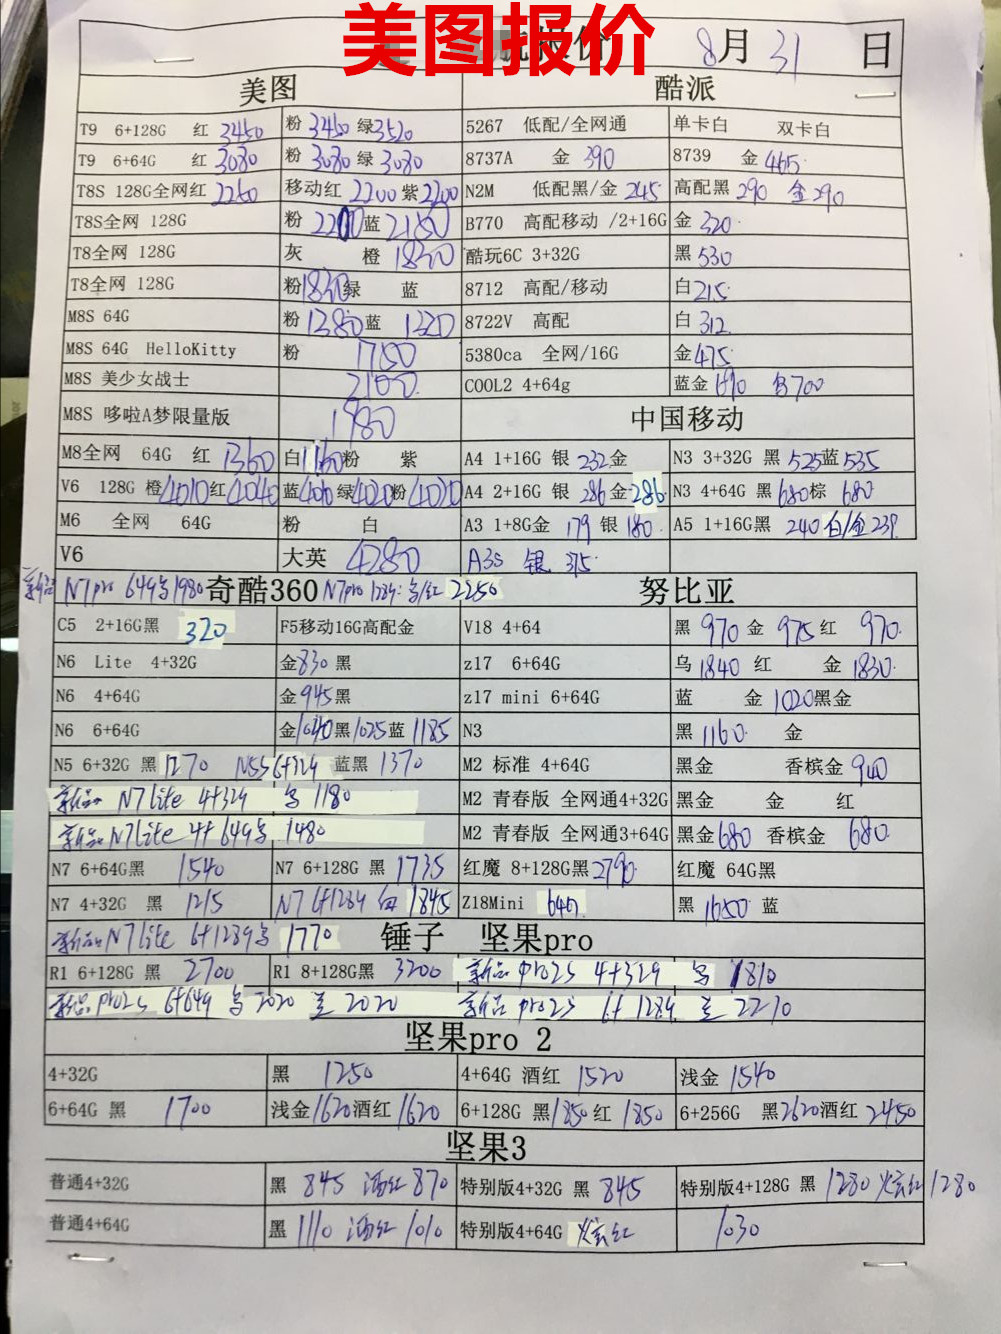 美图报价
报价 8月31日
美图 酷派
T9 6+128G 红 3450 粉 3450 绿 3520 5267 低配/全网通 单卡白 双卡白
T9 6+64G 红 3080 粉 3080 绿 3080 8737A 金 390 8739 金 465
T8S 128G全网红 2260 移动红 2200 紫 2200 N2M 低配黑/金 245 高配黑 290 金 290
T8S全网 128G 粉 蓝 2180 B770 高配移动 /2+16G 金 320
T8全网 128G 灰 橙 1830 酷玩6C 3+32G 黑 530
T8全网 128G 粉 1830 绿 蓝 8712 高配/移动 白 215
M8S 64G 粉 1380 蓝 1320 8722V 高配 白 312
M8S 64G HelloKitty 粉 1780 5380ca 全网/16G 金 475
M8S 美少女战士 2100 COOL2 4+64g 蓝金 白 700
M8S 哆啦A梦限量版 1980 中国移动
M8全网 64G 红 1360 白 1160 粉 紫 A4 1+16G 银 232 金 N3 3+32G 黑 525 蓝 535
V6 128G 橙 4010 红 4040 蓝 4010 绿 4020 粉 4020 A4 2+16G 银 286 金 286 N3 4+64G 黑 680 棕 680
M6 全网 64G 粉 白 A3 1+8G金 179 银 180 A5 1+16G黑 240 白/金 239
V6 大英 4280 A3s 银 315
新品 N7pro 64g 1980 奇酷360 N7pro 128g: /红 2250 努比亚
C5 2+16G黑 320 F5移动16G高配金 V18 4+64 黑 970 金 975 红 970
N6 Lite 4+32G 金 830 黑 z17 6+64G 乌 1840 红 金 1830
N6 4+64G 金 945 黑 z17 mini 6+64G 蓝 金 1020 黑金
N6 6+64G 金 1040 黑 1025 蓝 1185 N3 黑 1160 金
N5 6+32G 黑 1270 N5S 6+32g 蓝黑 1370 M2 标准 4+64G 黑金 香槟金 940
新品 N7 lite 4+32g 1180 M2 青春版 全网通4+32G 黑金 金 红
新品 N7 lite 4+64g 1480 M2 青春版 全网通3+64G 黑金 680 香槟金 680
N7 6+64G黑 1540 N7 6+128G 黑 1735 红魔 8+128G黑 2790 红魔 64G黑
N7 4+32G 黑 1215 N7 6+128g 白 1845 Z18Mini 黑 1650 蓝
新品 N7 lite 6+128g 1770 锤子 坚果pro
R1 6+128G 黑 2700 R1 8+128G黑 3200 新品 pro2s 4+32g 1810
新品 pro2s 6+64g 2020 2020 新品 pro2s 6+128g 2210
坚果pro 2
4+32G 黑 1250 4+64G 酒红 1520 浅金 1540
6+64G 黑 1700 浅金 1620 酒红 1620 6+128G 黑 1850 红 1850 6+256G 黑 2620 酒红 2450
坚果3
普通4+32G 黑 845 酒红 870 特别版4+32G 黑 845 特别版4+128G 黑 1280 炫红 1280
普通4+64G 黑 1110 酒红 1010 特别版4+64G 炫红 1030